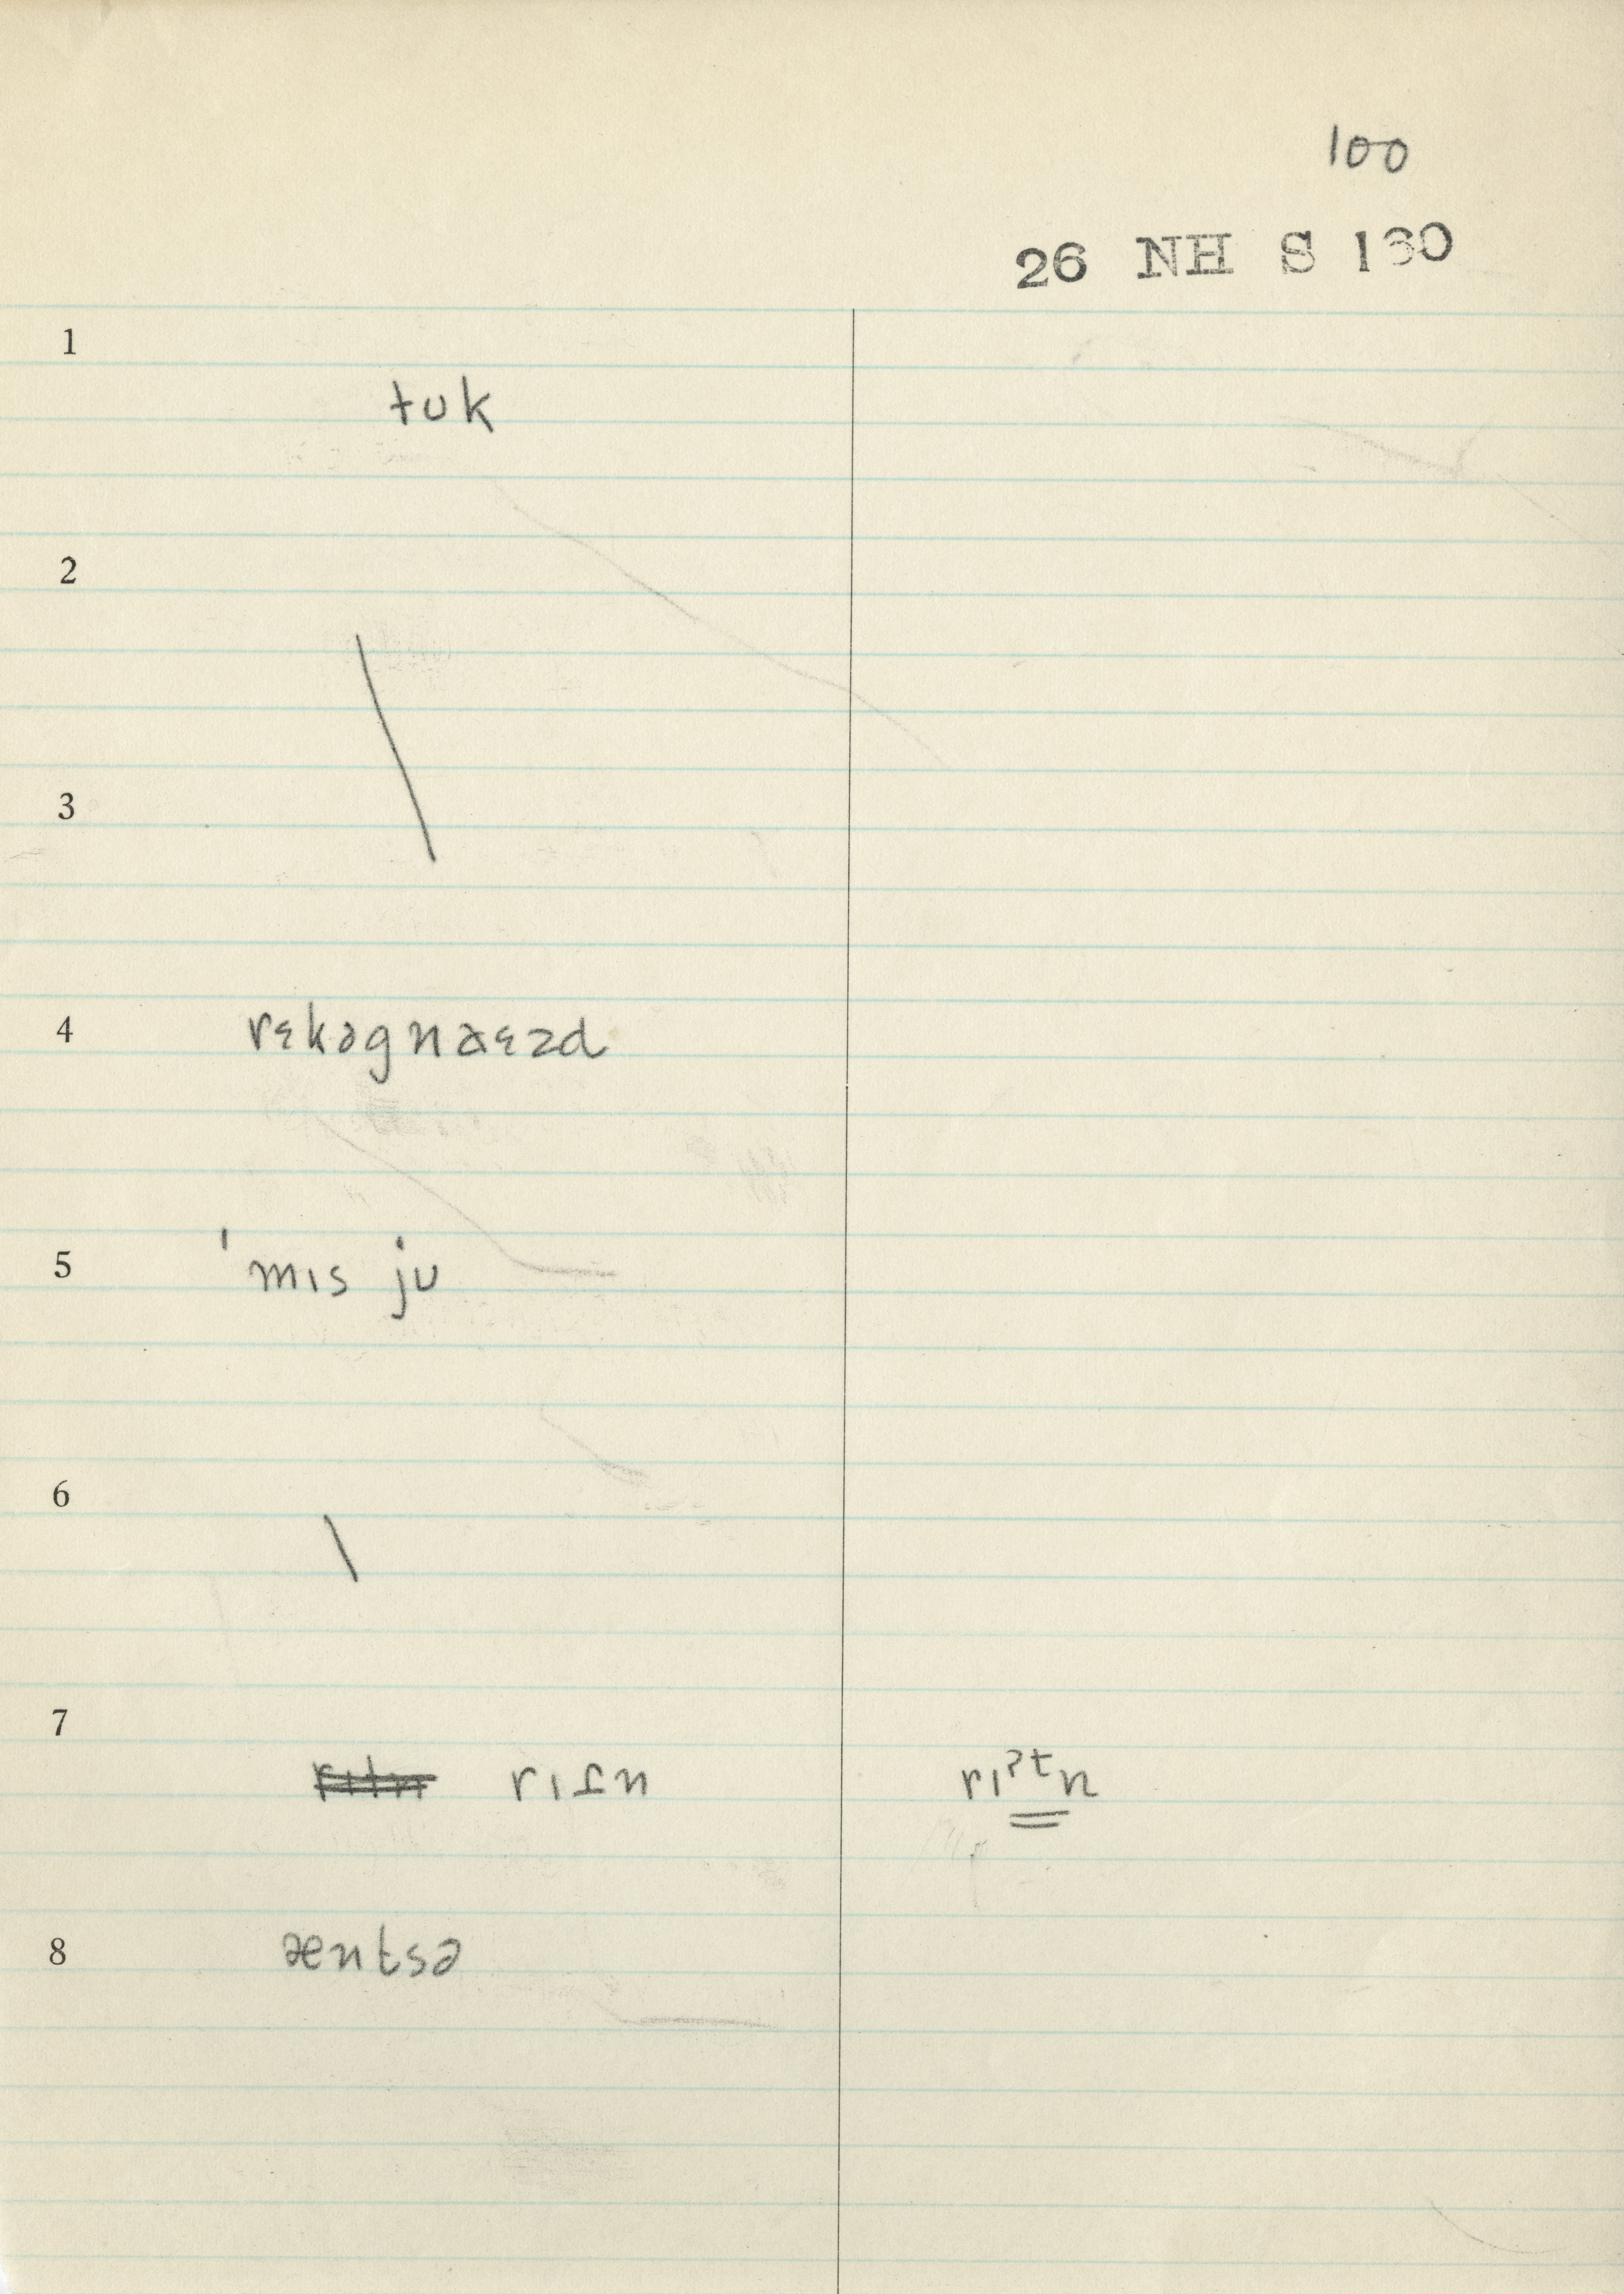 100
26 NH S 130
1
tʊk
2
\
3
4 rɛkəgnaɛzd
5 ˈmɪs jʊ
6
\
7
rɪʔn rɪˀᵗn
8 æntsə